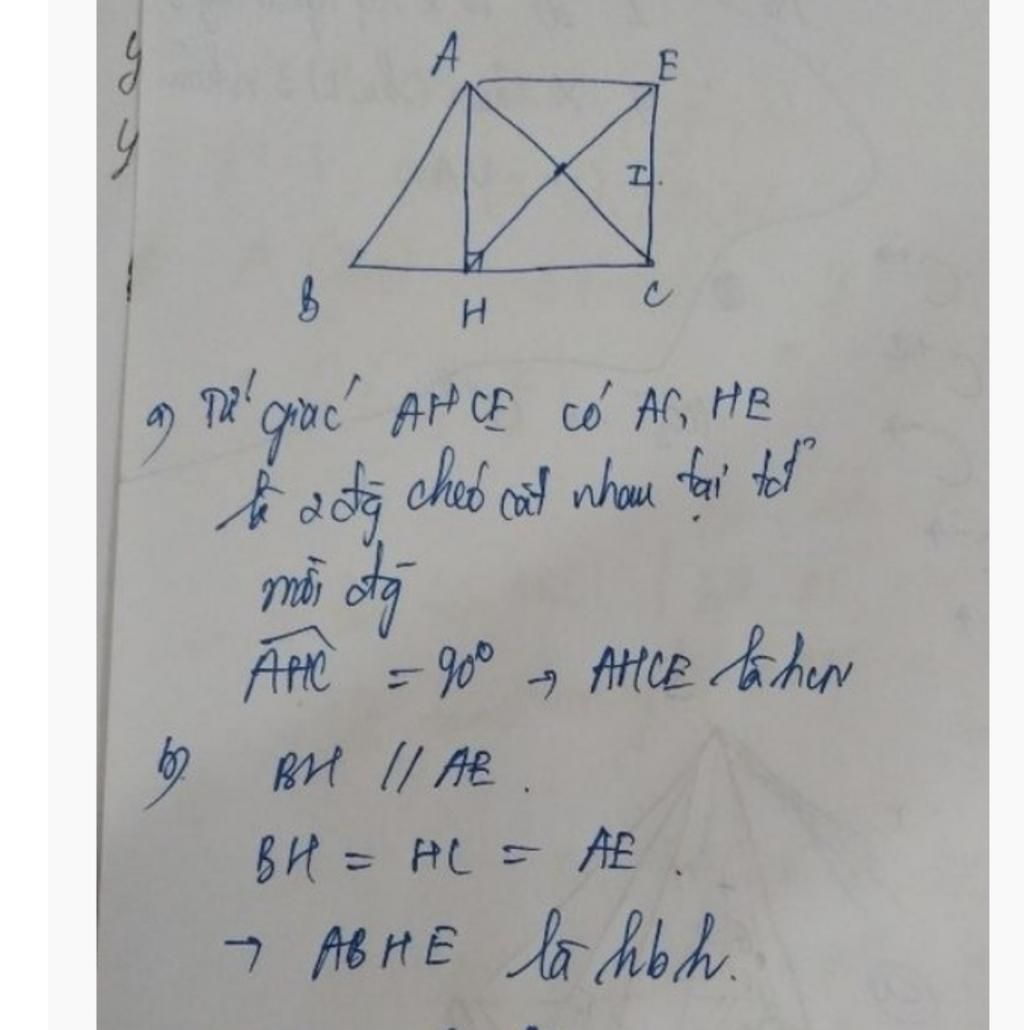 y
y
A E
I
B H C
a) Tứ giác AHCE có AC, HE
là 2 đg̃ chéo cắt nhau tại tđ
mỗi đg̃
AHC = 90° → AHCE là hcn
b) BH // AE.
BH = HC = AE.
→ ABHE là hbh.